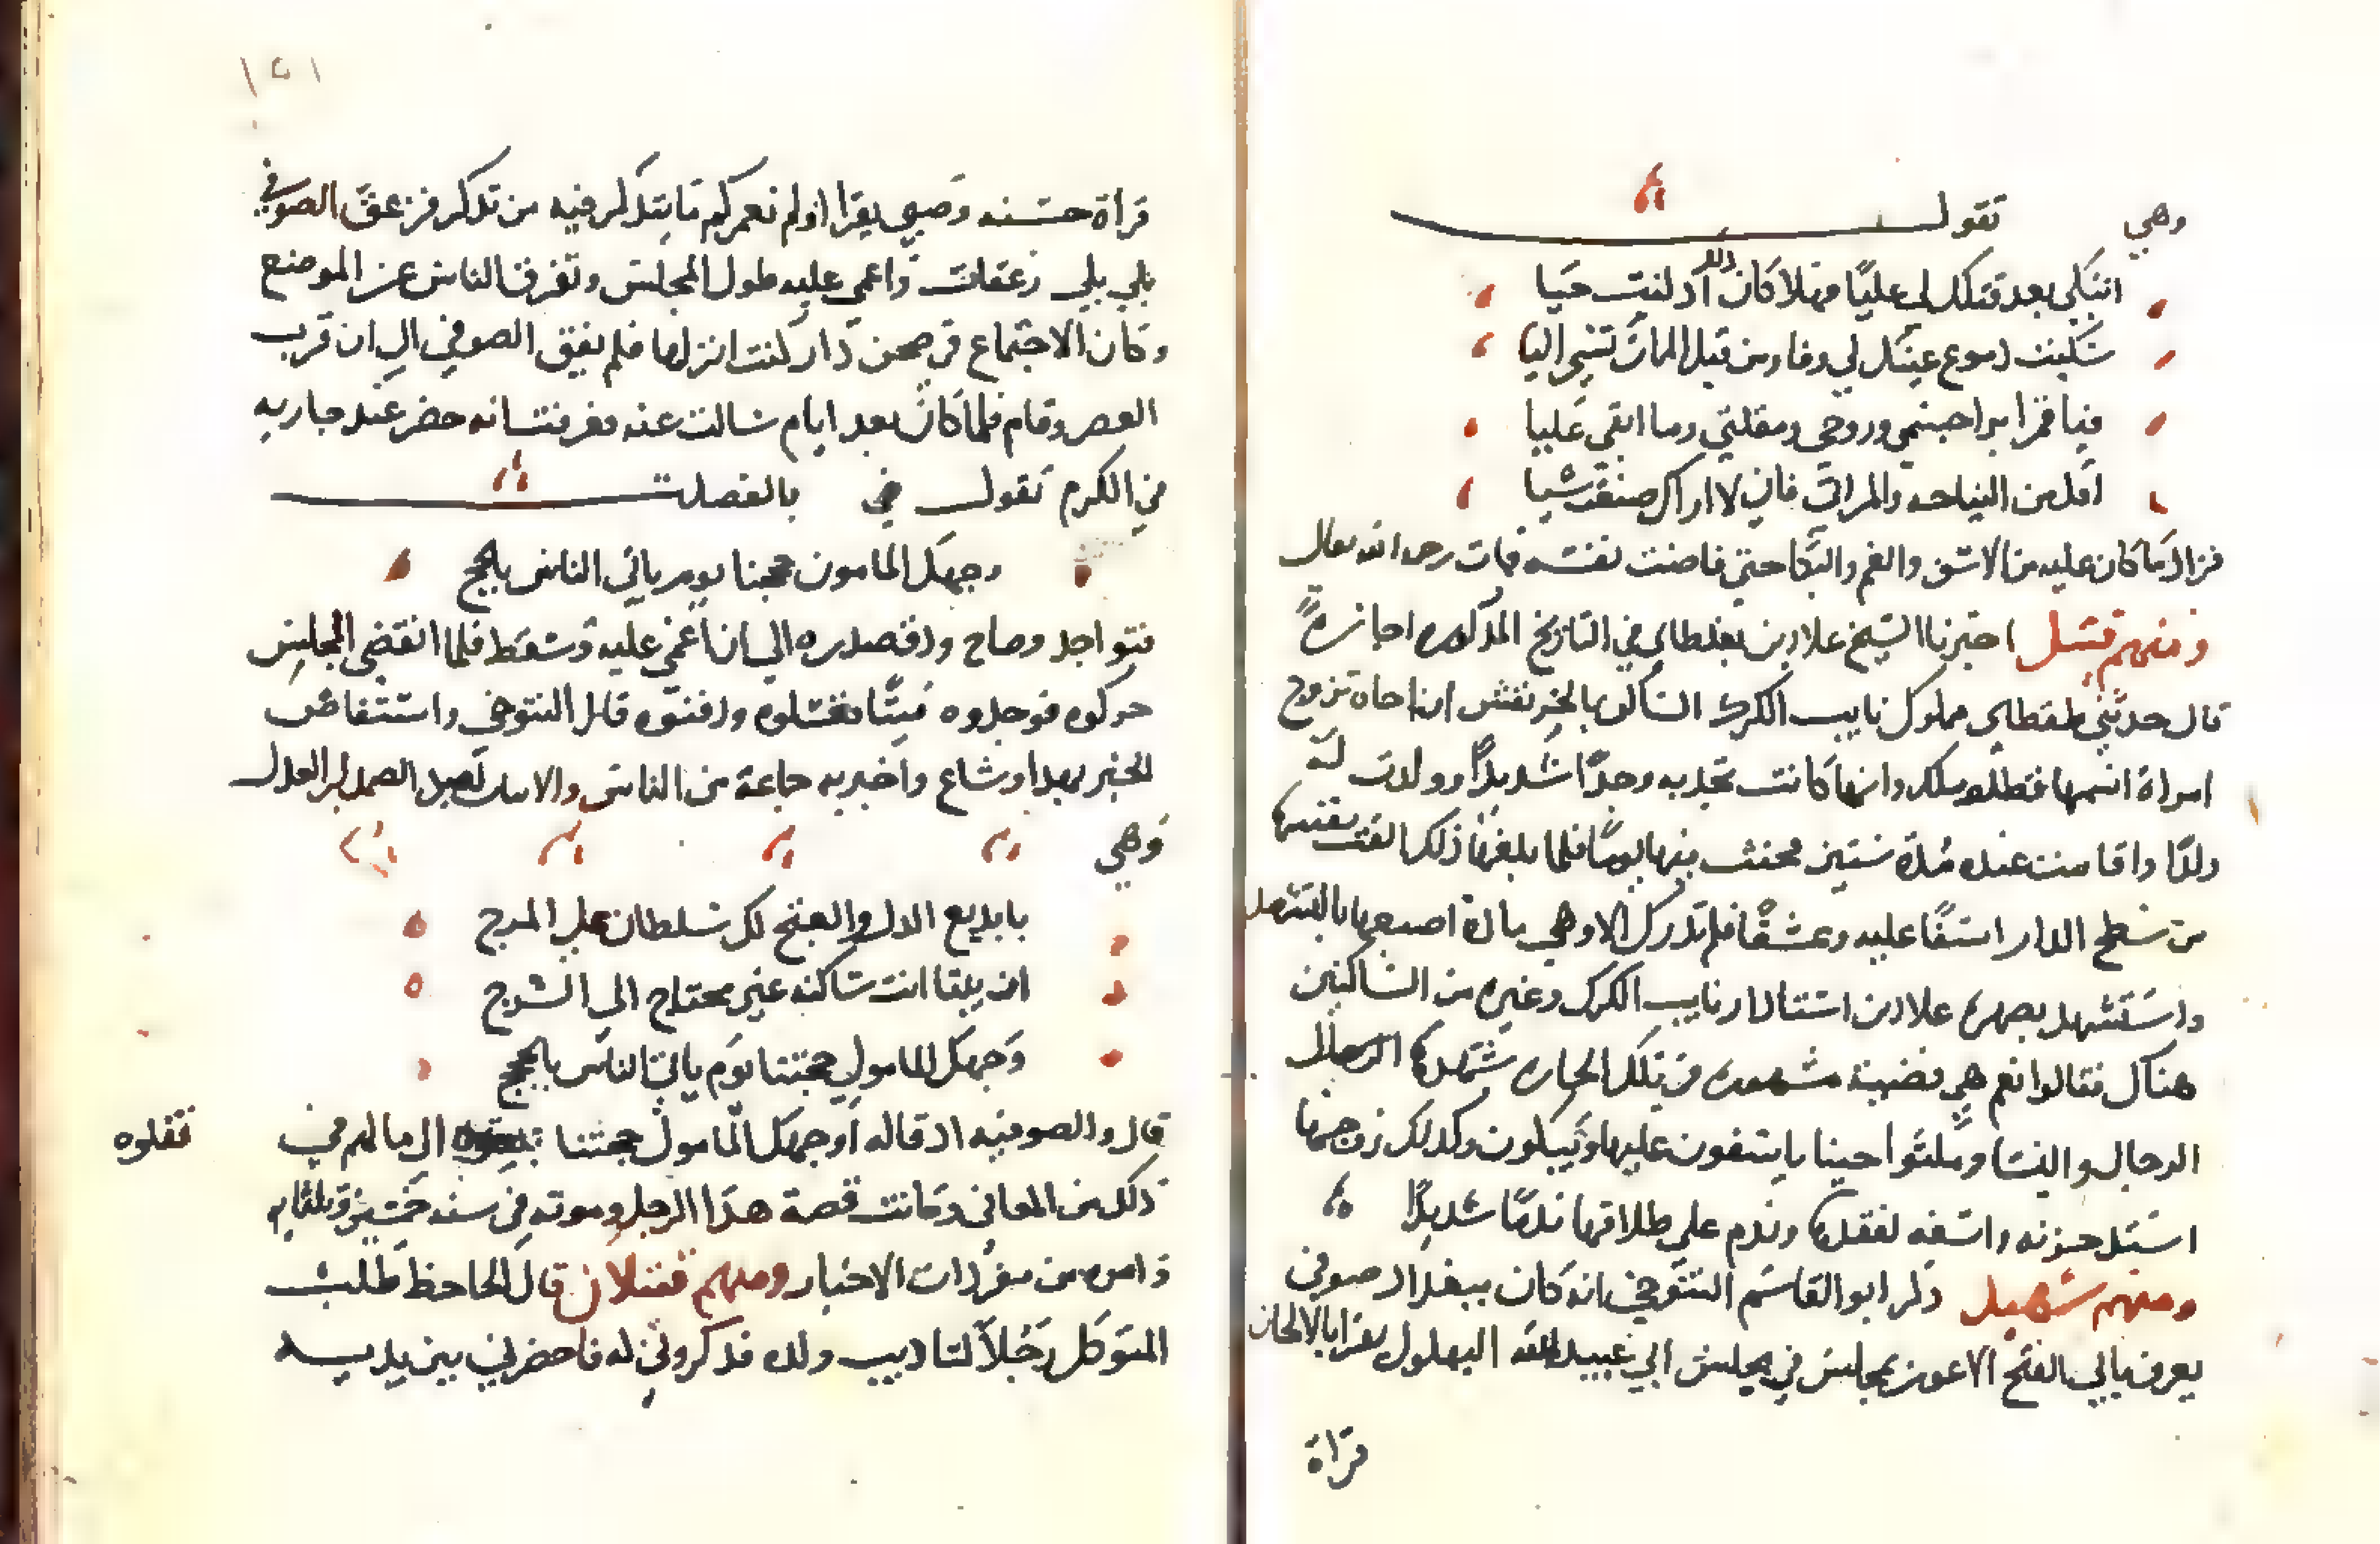 وهي تقول
اتبكي بعد قتلك لي عليا فهلا كان ذا اذ كنت حيا
سكبت دموع عينك لي وفا ومن قبل الممات تسي اليا
فيا قمرا برا جسمي وروحي ومقلتي وما ابقى عليا
اقل من النياحه والمراثي فاني لا اراك صنعت شيا
فزاد ما كان عليه من الاسف والغم والبكا حتى فاضت نفسه فمات رحمه الله تعالى
ومنهم قتيل اخبرنا الشيخ علا الدين مغلطاي في التاريخ المذكور اجازة
قال حدثني طقطاي مملوك نايب الكرك الساكن بالخرنفش ان اخاه تزوج
امراة اسمها قطلوملك وانها كانت تجد به وجدا شديدا وولدت له
ولدا واقامت عنده مدة سنتين فحنث فيها يوما فلما بلغها ذلك القت نفسها
من سطح الدار اسفا عليه وعشقا فلم تدرك الا وهي مادة اصبعها بالتشهد
واستشهد بصهره علا الدين استادار نايب الكرك وغيره من الساكنين
هناك فقالوا نعم هي قضية مشهورة في تلك الحارة شهدها
الرجال والنسا ومكثوا حينا يتاسفون عليها ويبكون وكذلك زوجها
اشتد حزنه واسفه لفقدها وندم على طلاقها ندما شديدا
ومنهم شهيد ذكر ابو القاسم التنوخي انه كان ببغداد صوفي
يعرف بابي الفتح الاعور بمجلس في مجلس ابي عبيد الله البهلول يقرا بالالحان
قراة
١٥١
قراة حسنه وصبي يقرا اولم نعمركم ما يتذكر فيه من تذكر فزعق الصوفي
بلي بلي زعقات واغمي عليه طول المجلس وتفرق الناس عن الموضع
وكان الاجتماع في صحن دار كنت انزلها فلم يفق الصوفي الى ان قرب
العصر وقام فلما كان بعد ايام سالت عنه فعرفت انه حضر عند جاريه
في الكرخ تقول في بالقصلت
وجهك المامون حجتنا يوم ياتي الناس بالحجج
فتواجد وصاح ودق صدره الى ان اغمي عليه وسقط فلما انقضى المجلس
حركوه فوجدوه ميتا فغسلوه ودفنوه قال التنوخي واستفاض
الخبر بهذا وشاع واخبر به جماعة من الناس والابيات لعبد الصمد بن المعدل
وهي
يا بديع الدل والغنج لك سلطان على المهج
ان بيتا انت ساكنه غير محتاج الى السرج
وجهك المامول حجتنا يوم ياتي الناس بالحجج
قال والصوفيه اذ قاله اوجهك المامول حجتنا الى ما لهم في
فنقلوه
ذلك من المعاني وكانت قصة هذا الرجل وموته في سنه خمسين وثلثمايه
وامره من مفردات الاخبار ومنهم قتيلان قال الجاحظ طلبت
المتوكل رجلا لتاديب ولده فذكروني له فاحضرني بين يديه